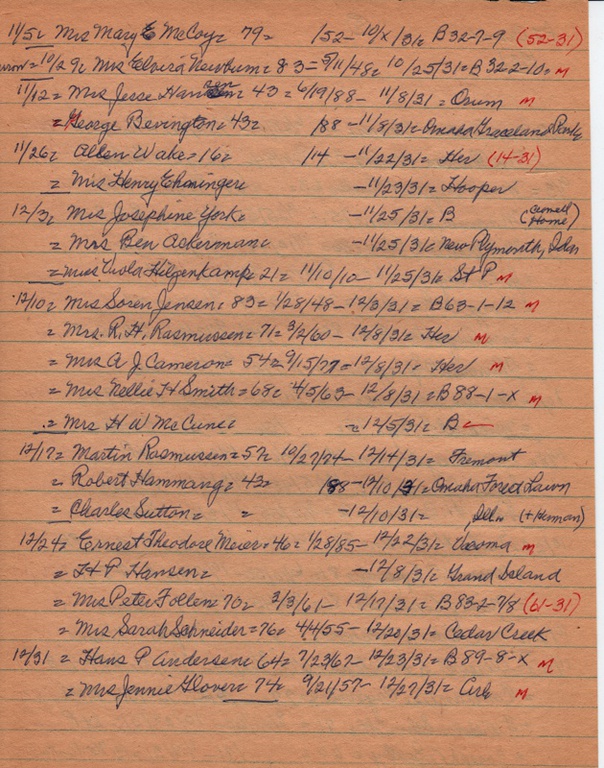 11/5 = Mrs Mary E McCoy = 79 = 152 - 10/x/31 = B 32-7-9 (52-31)
10/29 = Mrs Elvira Newburn = 83 = 5/11/48 = 10/25/31 = B 32-2-10 = M
11/12 = Mrs Jesse Hansen = 43 = 6/19/88 - 11/8/31 = Orum M
= George Bevington = 43 = 188 - 11/8/31 = Omaha Graceland Park
11/26 = Allen Wake = 16 = 114 - 11/22/31 = Her (14-31)
= Mrs Henry Ehninger = - 11/23/31 = Hooper
12/3 = Mrs Josephine York = - 11/25/31 = B (Crowell Home)
= Mrs Ben Ackerman = - 11/25/31 = New Plymouth, Idah
= Miss Viola Hilgenkamp = 21 = 11/10/10 - 11/25/31 = St P M
12/10 = Mrs Soren Jensen = 83 = 1/28/48 - 12/3/31 = B 63-1-12 M
= Mrs. R. H. Rasmussen = 71 = 3/2/60 - 12/8/31 = Her M
= Mrs A J Cameron = 54 = 9/15/77 = 12/8/31 = Her M
= Mrs Nellie H Smith = 68 = 4/5/63 - 12/8/31 = B 88-1-X M
= Mrs H W McCune = = 12/5/31 = B
12/17 = Martin Rasmussen = 57 = 10/27/74 - 12/14/31 = Fremont
= Robert Hammang = 43 = 188 - 12/10/31 = Omaha Forest Lawn
= Charles Sutton = = - 12/10/31 = (+ Herman)
12/24 = Ernest Theodore Meier = 46 = 1/28/85 - 12/22/31 = Ucoma M
= H P Hansen = - 12/8/31 = Grand Island
= Mrs Peter Follen = 70 = 3/3/61 - 12/17/31 = B 83-2-7/8 (61-31)
= Mrs Sarah Schneider = 76 = 4/4/55 - 12/20/31 = Cedar Creek
12/31 = Hans P Andersen = 64 = 7/23/67 - 12/23/31 = B 89-8-X M
= Mrs Jennie Glover = 74 = 9/21/57 - 12/27/31 = Arl M